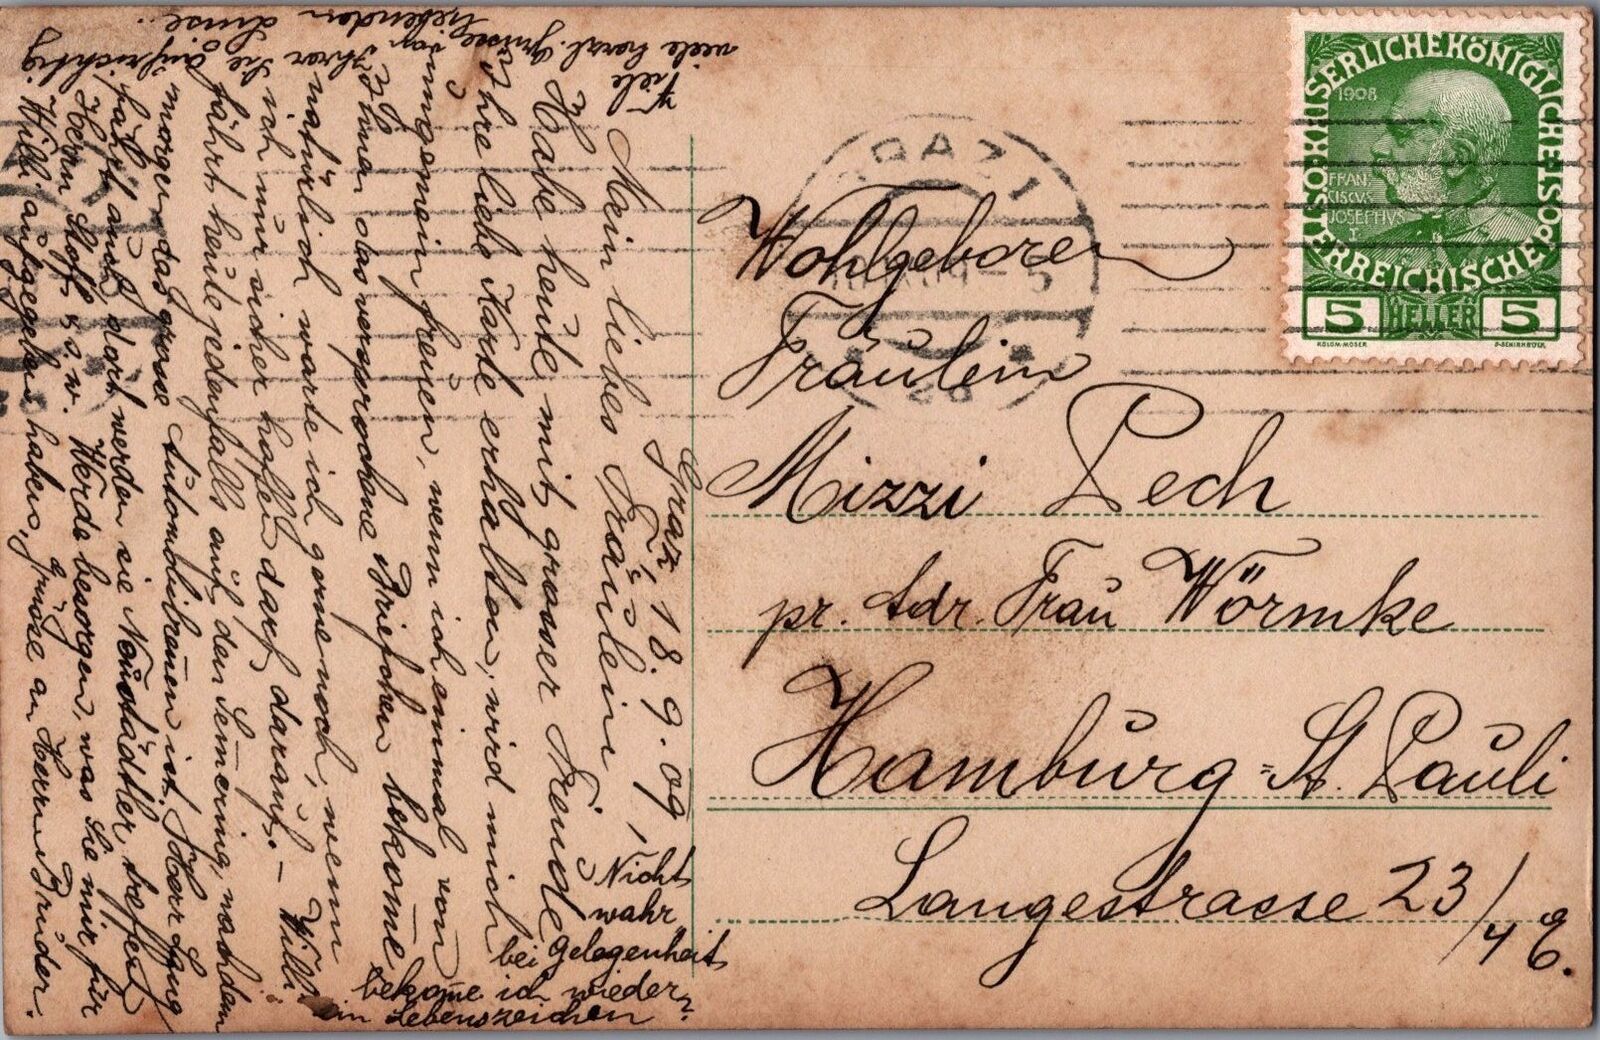 Graz 18.9.09,
Mein liebes Fräulein!
Habe heute mit grosser Freude
Ihre liebe Karte erhalten, wird mich
ungemein freuen, wenn ich einmal von
Ihnen das versprochene Briefchen bekome
natürlich warte ich gerne noch, wenn
ich nur sicher hoffen darf darauf. — Willi
fährt heute jedenfalls auf den Semering, nachdem
morgen das grosse Automobilrennen ist, Herr Lang
fährt auch, dort werden sie Neustädtler treffen,
Herrn Stoff u.s.w. Werde besorgen, was Sie mir für
Willi aufgegeben haben, Grüsse an Herrn Bruder.
Viele
viele herzl. Grüsse von Ihrer Sie aufrichtig
liebenden Luise.
Nicht
wahr
bei Gelegenheit
bekome ich wieder
ein Lebenszeichen?
Wohlgeboren
Fräulein
Mizzi Pech
pr. Adr. Frau Wörmke
Hamburg = St. Pauli
Langestrasse 23/4 E.
GRAZ 1
KAISERLICHE KÖNIGLICHE ÖSTERREICHISCHE POST
1908
FRAN
CISCVS
JOSEPHVS
I.
5 HELLER 5
KOLOM. MOSER
F. SCHIRNBÖCK